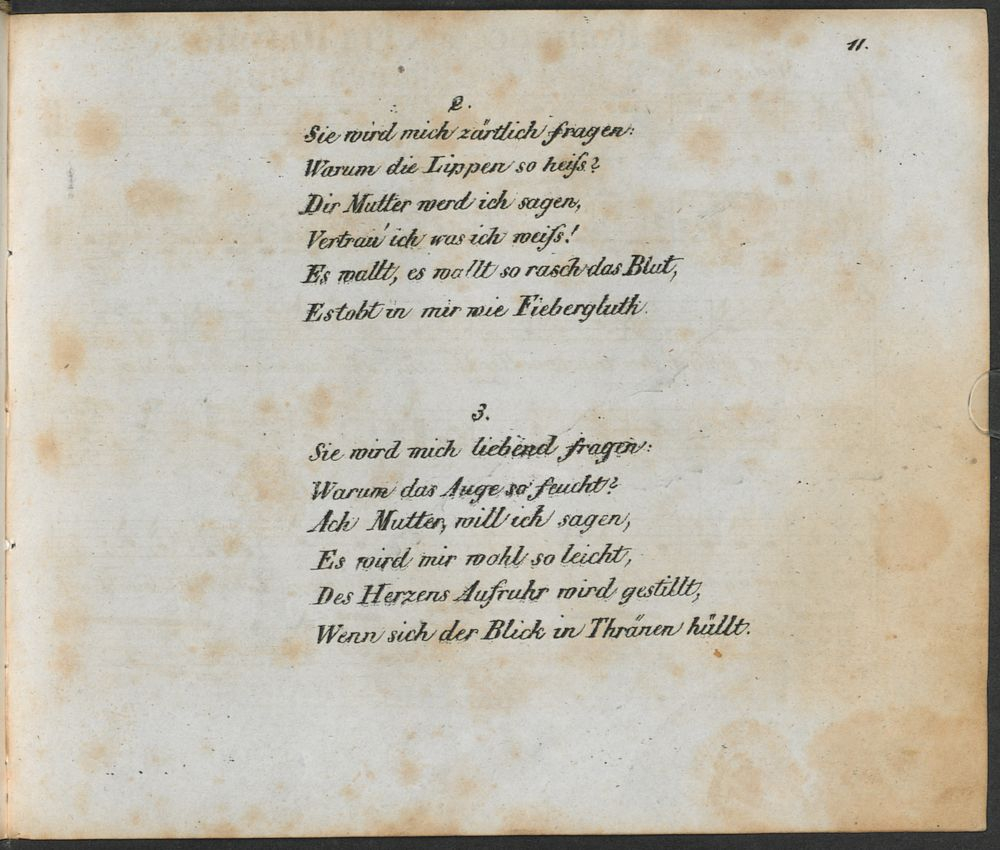 11.
2.
Sie wird mich zärtlich fragen:
Warum die Lippen so heiſs?
Dir Mutter werd ich sagen,
Vertrau' ich was ich weiſs!
Es wallt, es wallt so rasch das Blut,
Es tobt in mir wie Fiebergluth.
3.
Sie wird mich liebend fragen:
Warum das Auge so feucht?
Ach Mutter, will ich sagen,
Es wird mir wohl so leicht,
Des Herzens Aufruhr wird gestillt,
Wenn sich der Blick in Thränen hüllt.